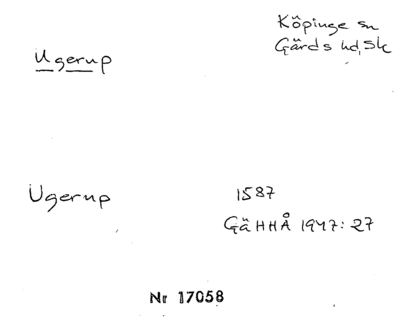 Ugerup
Köpinge sn
Gärds hd, Sk
Ugerup
1587
GäHHÅ 1947: 27
Nr 17058